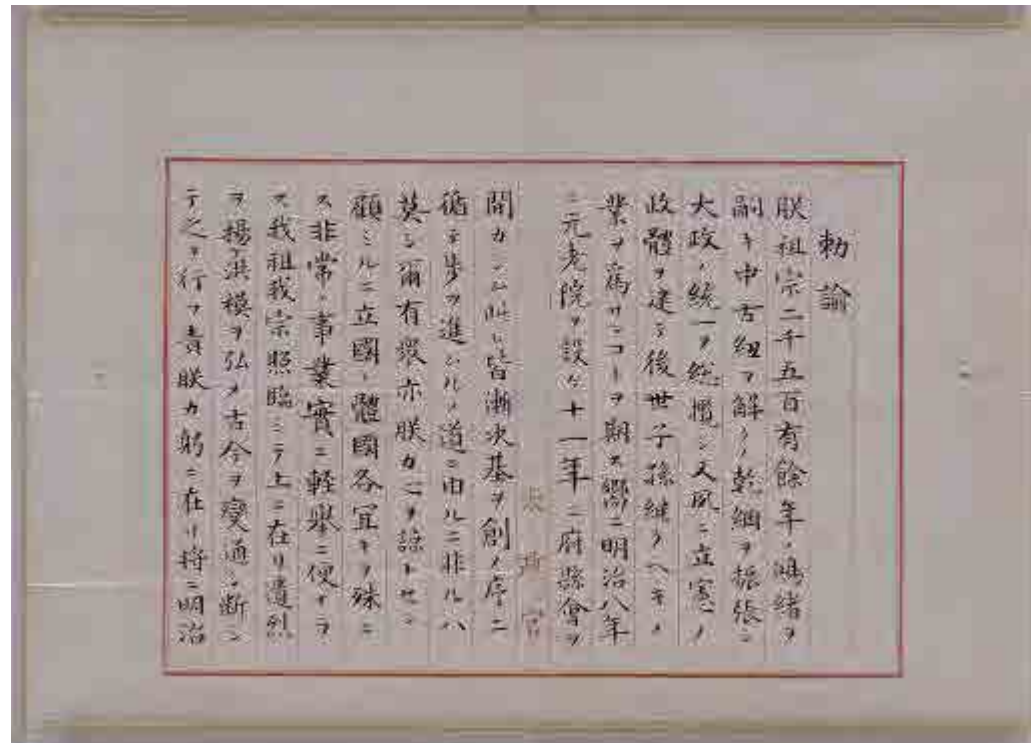 勅諭
朕祖宗二千五百有餘年ノ鴻緒ヲ
嗣キ中古紐ヲ解クノ乾綱ヲ振張シ
大政ノ統一ヲ総攬シ又夙ニ立憲ノ
政體ヲ建テ後世子孫継クヘキノ
業ヲ為サンコトヲ期ス嚮ニ明治八年
ニ元老院ヲ設ケ十一年ニ府縣會ヲ
開カシム此レ皆漸次基ヲ創メ序ニ
循テ歩ヲ進ムルノ道ニ由ルニ非ルハ
莫シ爾有衆亦朕カ心ヲ諒トセン
顧ミルニ立國ノ體國各宜キヲ殊ニ
ス非常ノ事業實ニ軽擧ニ便ナラ
ス我祖我宗照臨シテ上ニ在リ遺烈
ヲ揚ケ洪模ヲ弘メ古今ヲ変通シ断シ
テ之ヲ行フ責朕カ躬ニ在リ将ニ明治